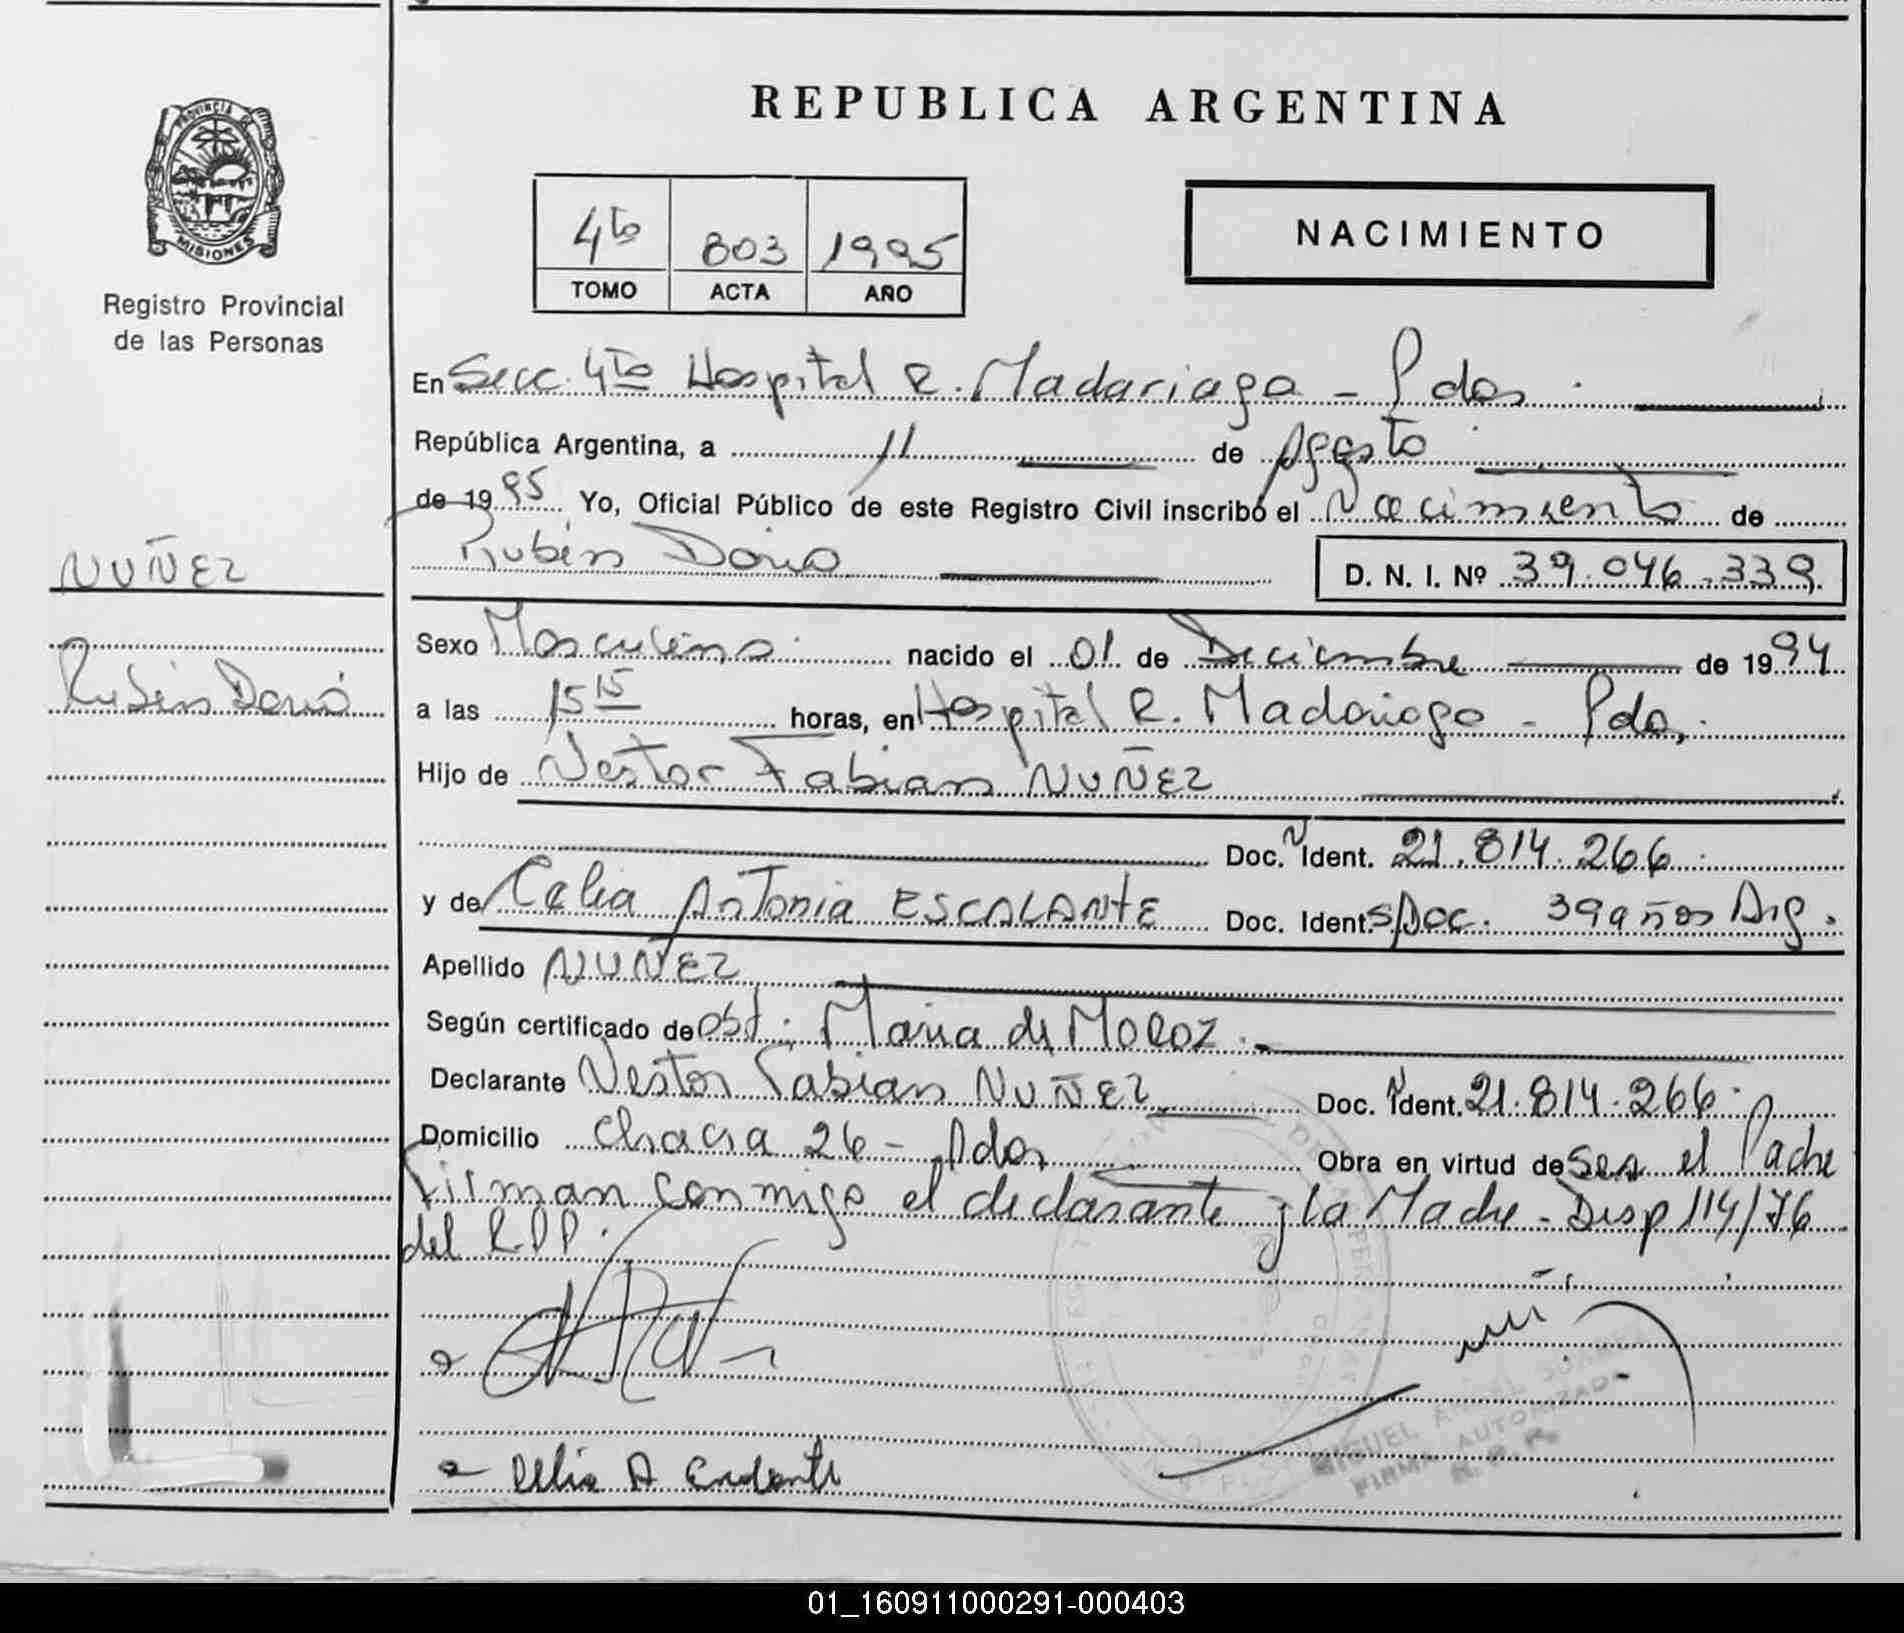 REPUBLICA ARGENTINA
PROVINCIA DE
MISIONES
Registro Provincial
de las Personas
4to 803 1995
TOMO ACTA AÑO
NACIMIENTO
En Secc. 4to Hospital R. Madariaga - Pdas.
República Argentina, a 11 de Agosto
de 1995 Yo, Oficial Público de este Registro Civil inscribó el Nacimiento de
Rubén Dario
D. N. I. Nº 39.046.339
NUÑEZ
Rubén Dario
Sexo Masculino nacido el 01 de Diciembre de 1994
a las 15 15 horas, en Hospital R. Madariaga - Pdas.
Hijo de Nestor Fabian NUÑEZ
Doc. N Ident. 21.814.266
y de Celia Antonia ESCALANTE Doc. Ident. S/Doc. 39 años Arg.
Apellido NUÑEZ
Según certificado de obst. Maria de MOROZ
Declarante Nestor Fabian NUÑEZ Doc. N Ident. 21.814.266
Domicilio Chacra 26 - Pdas Obra en virtud de Ser el Padre
Firman conmigo el declarante y la Madre - Disp 114/76
del R.P.P.
Celia A
MIGUEL ANGEL SUAREZ
FIRMA AUTORIZADA
R.P.P.
01_160911000291-000403